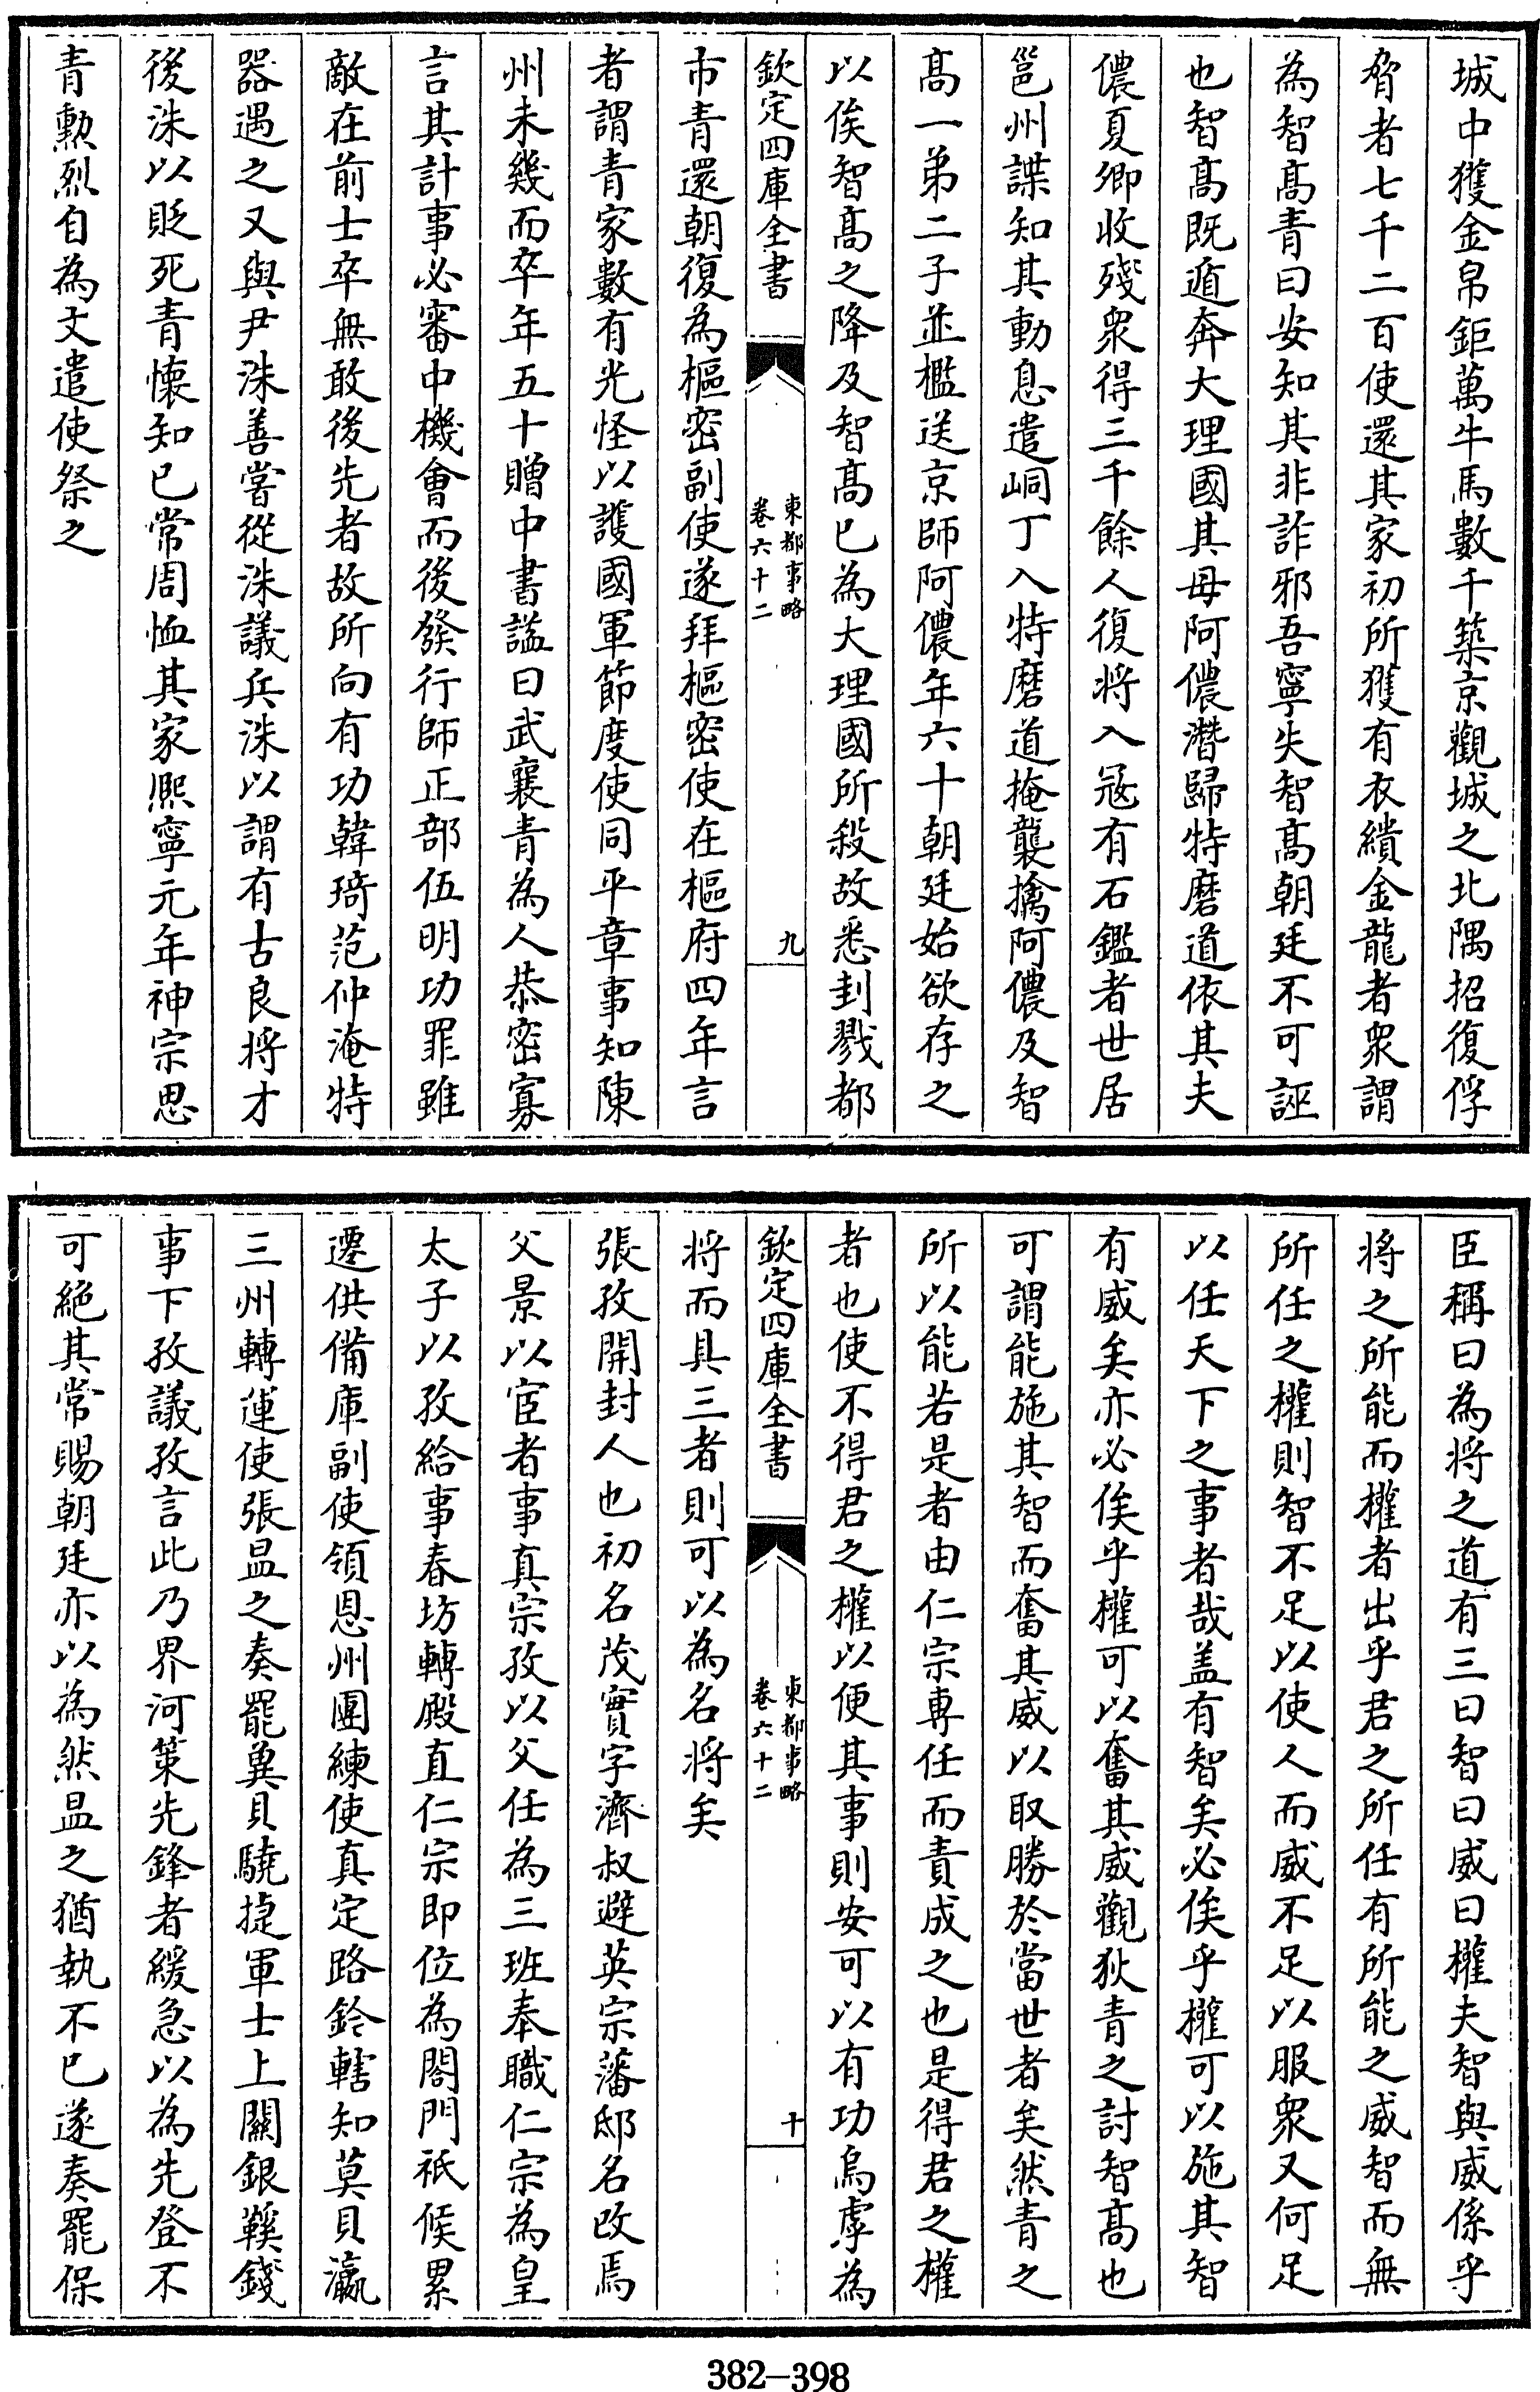 城中獲金帛鉅萬牛馬數千築京觀城之北隅招復俘
脅者七千二百使還其家初所獲有衣繢金龍者衆謂
為智髙青曰安知其非詐邪吾寧失智髙朝廷不可誣
也智髙既遁奔大理國其母阿儂潛歸特磨道依其夫
儂夏卿收殘衆得三千餘人復将入冦有石鑑者世居
邕州諜知其動息遣峒丁入特磨道掩襲擒阿儂及智
髙一弟二子並檻送京師阿儂年六十朝廷始欲存之
以俟智髙之降及智髙已為大理國所殺故悉封戮都
欽定四庫全書
東都事略
卷六十二
九
市青還朝復為樞密副使遂拜樞密使在樞府四年言
者謂青家數有光怪以護國軍節度使同平章事知陳
州未幾而卒年五十贈中書諡曰武襄青為人恭密寡
言其計事必審中機會而後發行師正部伍明功罪雖
敵在前士卒無敢後先者故所向有功韓琦范仲淹特
器遇之又與尹洙善嘗從洙議兵洙以謂有古良将才
後洙以貶死青懷知已常周恤其家熈寧元年神宗思
青勲烈自為文遣使祭之
臣稱曰為将之道有三曰智曰威曰權夫智與威係乎
将之所能而權者出乎君之所任有所能之威智而無
所任之權則智不足以使人而威不足以服衆又何足
以任天下之事者哉盖有智矣必俟乎權可以施其智
有威矣亦必俟乎權可以奮其威觀狄青之討智髙也
可謂能施其智而奮其威以取勝於當世者矣然青之
所以能若是者由仁宗専任而責成之也是得君之權
者也使不得君之權以便其事則安可以有功烏虖為
欽定四庫全書
東都事略
卷六十二
十
将而具三者則可以為名将矣
張孜開封人也初名茂實字濟叔避英宗藩邸名改焉
父景以宦者事真宗孜以父任為三班奉職仁宗為皇
太子以孜給事春坊轉殿直仁宗即位為閤門祇候累
遷供備庫副使領恩州團練使真定路鈐轄知莫貝瀛
三州轉運使張昷之奏罷冀貝驍捷軍士上關銀鞵錢
事下孜議孜言此乃界河策先鋒者緩急以為先登不
可絶其常賜朝廷亦以為然昷之猶執不已遂奏罷保
382-398